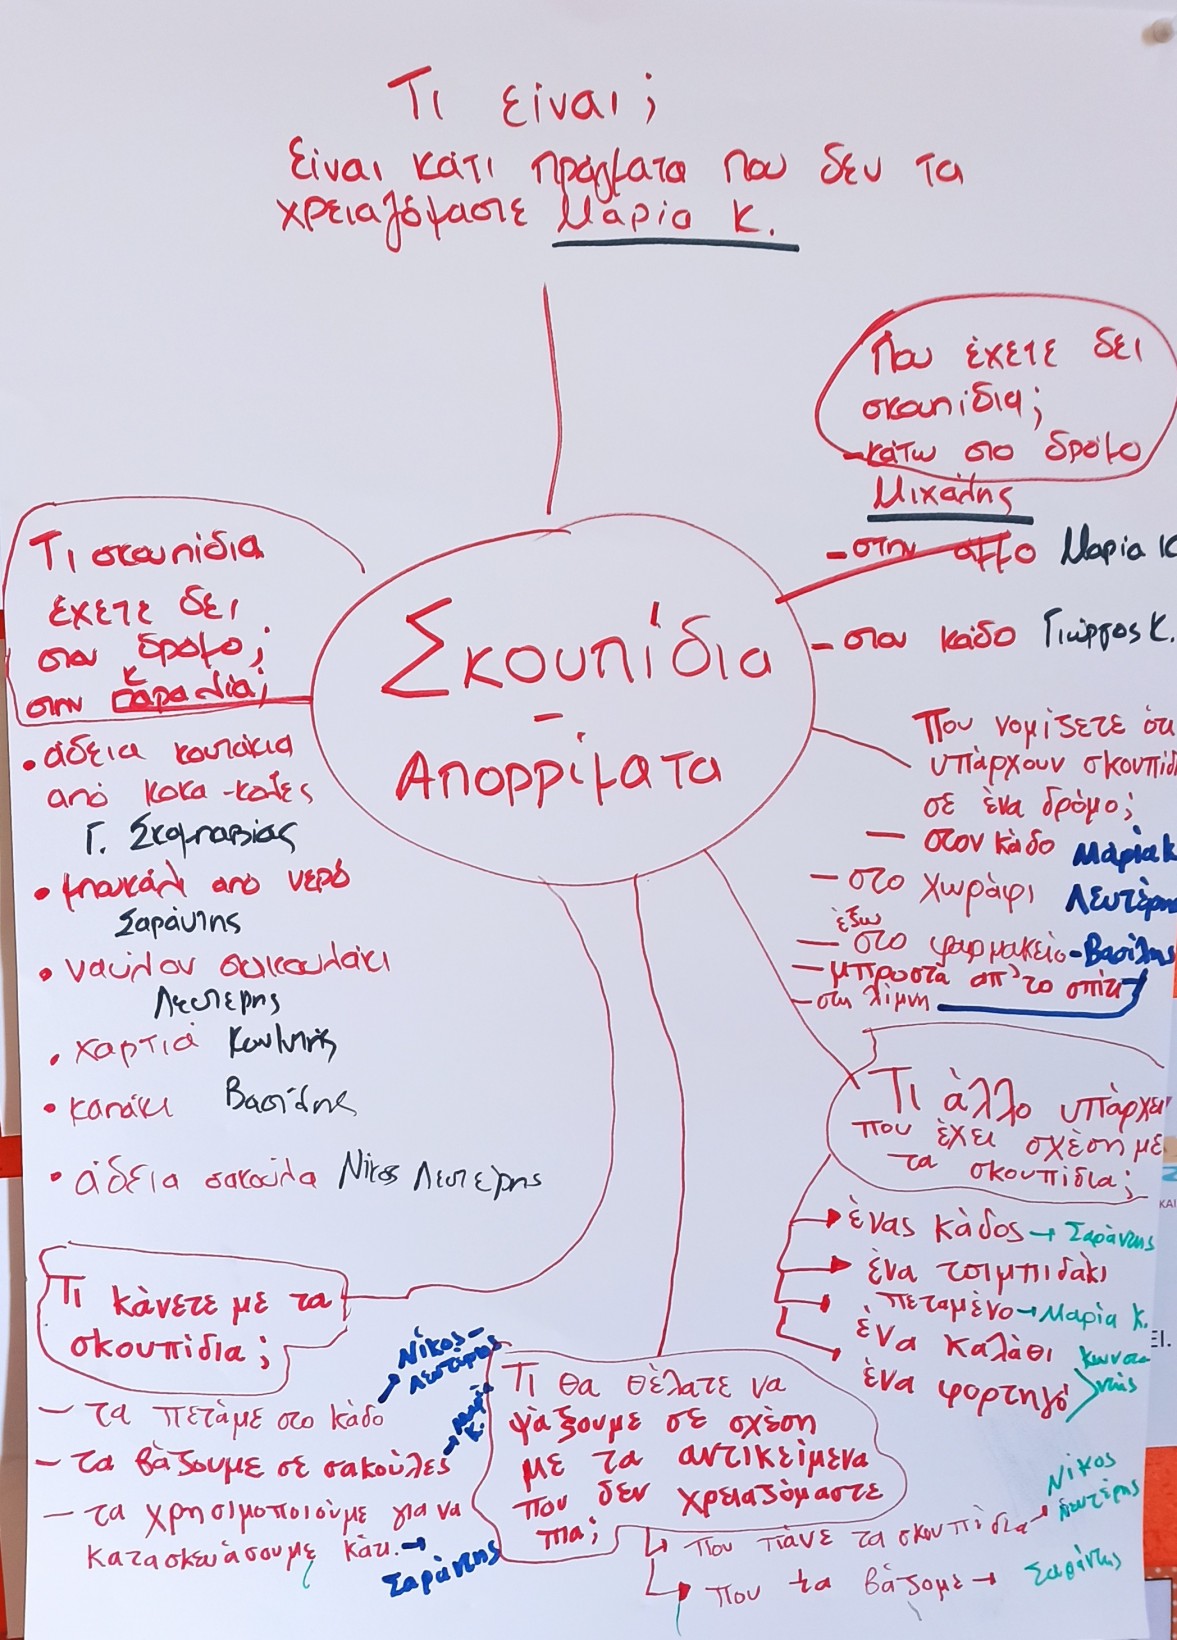 Τι είναι;
Είναι κάτι πράγματα που δεν τα
χρειαζόμαστε Μαρία Κ.
Που έχετε δει
σκουπίδια;
-κάτω στο δρόμο
Μιχάλης
-στην άμμο Μαρία Κ
-στον κάδο Γιώργος Κ.
Σκουπίδια
-
Απορρίματα
Τι σκουπίδια
έχετε δει
στον δρόμο;
στην παραλία;
• άδεια κουτάκια
από κοκα-κολες
Γ.
• μπουκάλι από νερό
Σαράντης
• νάυλον σακουλάκι
Λευτέρης
• χαρτιά Κων/νής
• καπάκι Βασίλης
• άδεια σακούλα Νίκος Λευτέρης
Που νομίζετε ότι
υπάρχουν σκουπίδ
σε ένα δρόμο;
- στον κάδο Μαρία Κ
- στο χωράφι Λευτέρη
έξω
- στο φαρμακείο-Βασίλης
- μπροστά απ' το σπίτι
- στη λίμνη
Τι άλλο υπάρχει
που έχει σχέση με
τα σκουπίδια;
ένας κάδος → Σαράντης
ένα τσιμπιδάκι
πεταμένο → Μαρία Κ.
ένα καλάθι Κωνστα
ένα φορτηγό ντής
Τι κάνετε με τα
σκουπίδια;
- τα πετάμε στο κάδο → Νίκος-Λευτέρης
- τα βάζουμε σε σακούλες → Μαρία Κ.
- τα χρησιμοποιούμε για να
κατασκευάσουμε κάτι. → Σαράντης
Τι θα θέλατε να
ψάξουμε σε σχέση
με τα αντικείμενα
που δεν χρειαζόμαστε
πια;
→ που πάνε τα σκουπίδια → Νίκος Λευτέρης
→ που τα βάζομε → Σαράντης